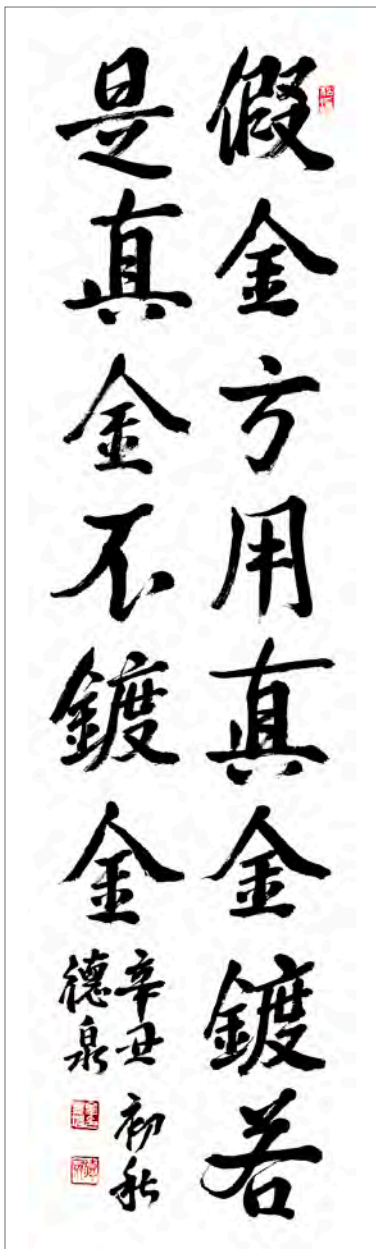 假金方用真金鍍若
是真金不鍍金
辛丑初秋
德泉